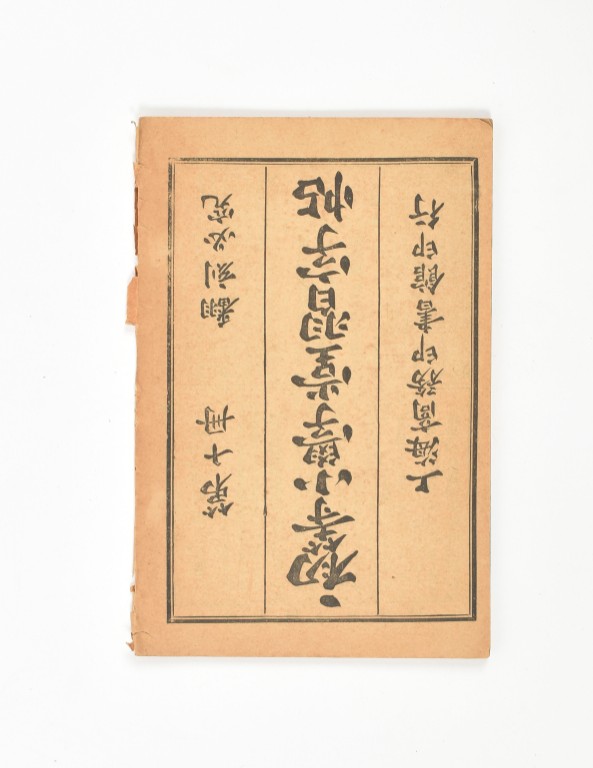 第十冊 翻刻必究
初等小學堂習字帖
上海商務印書館印行